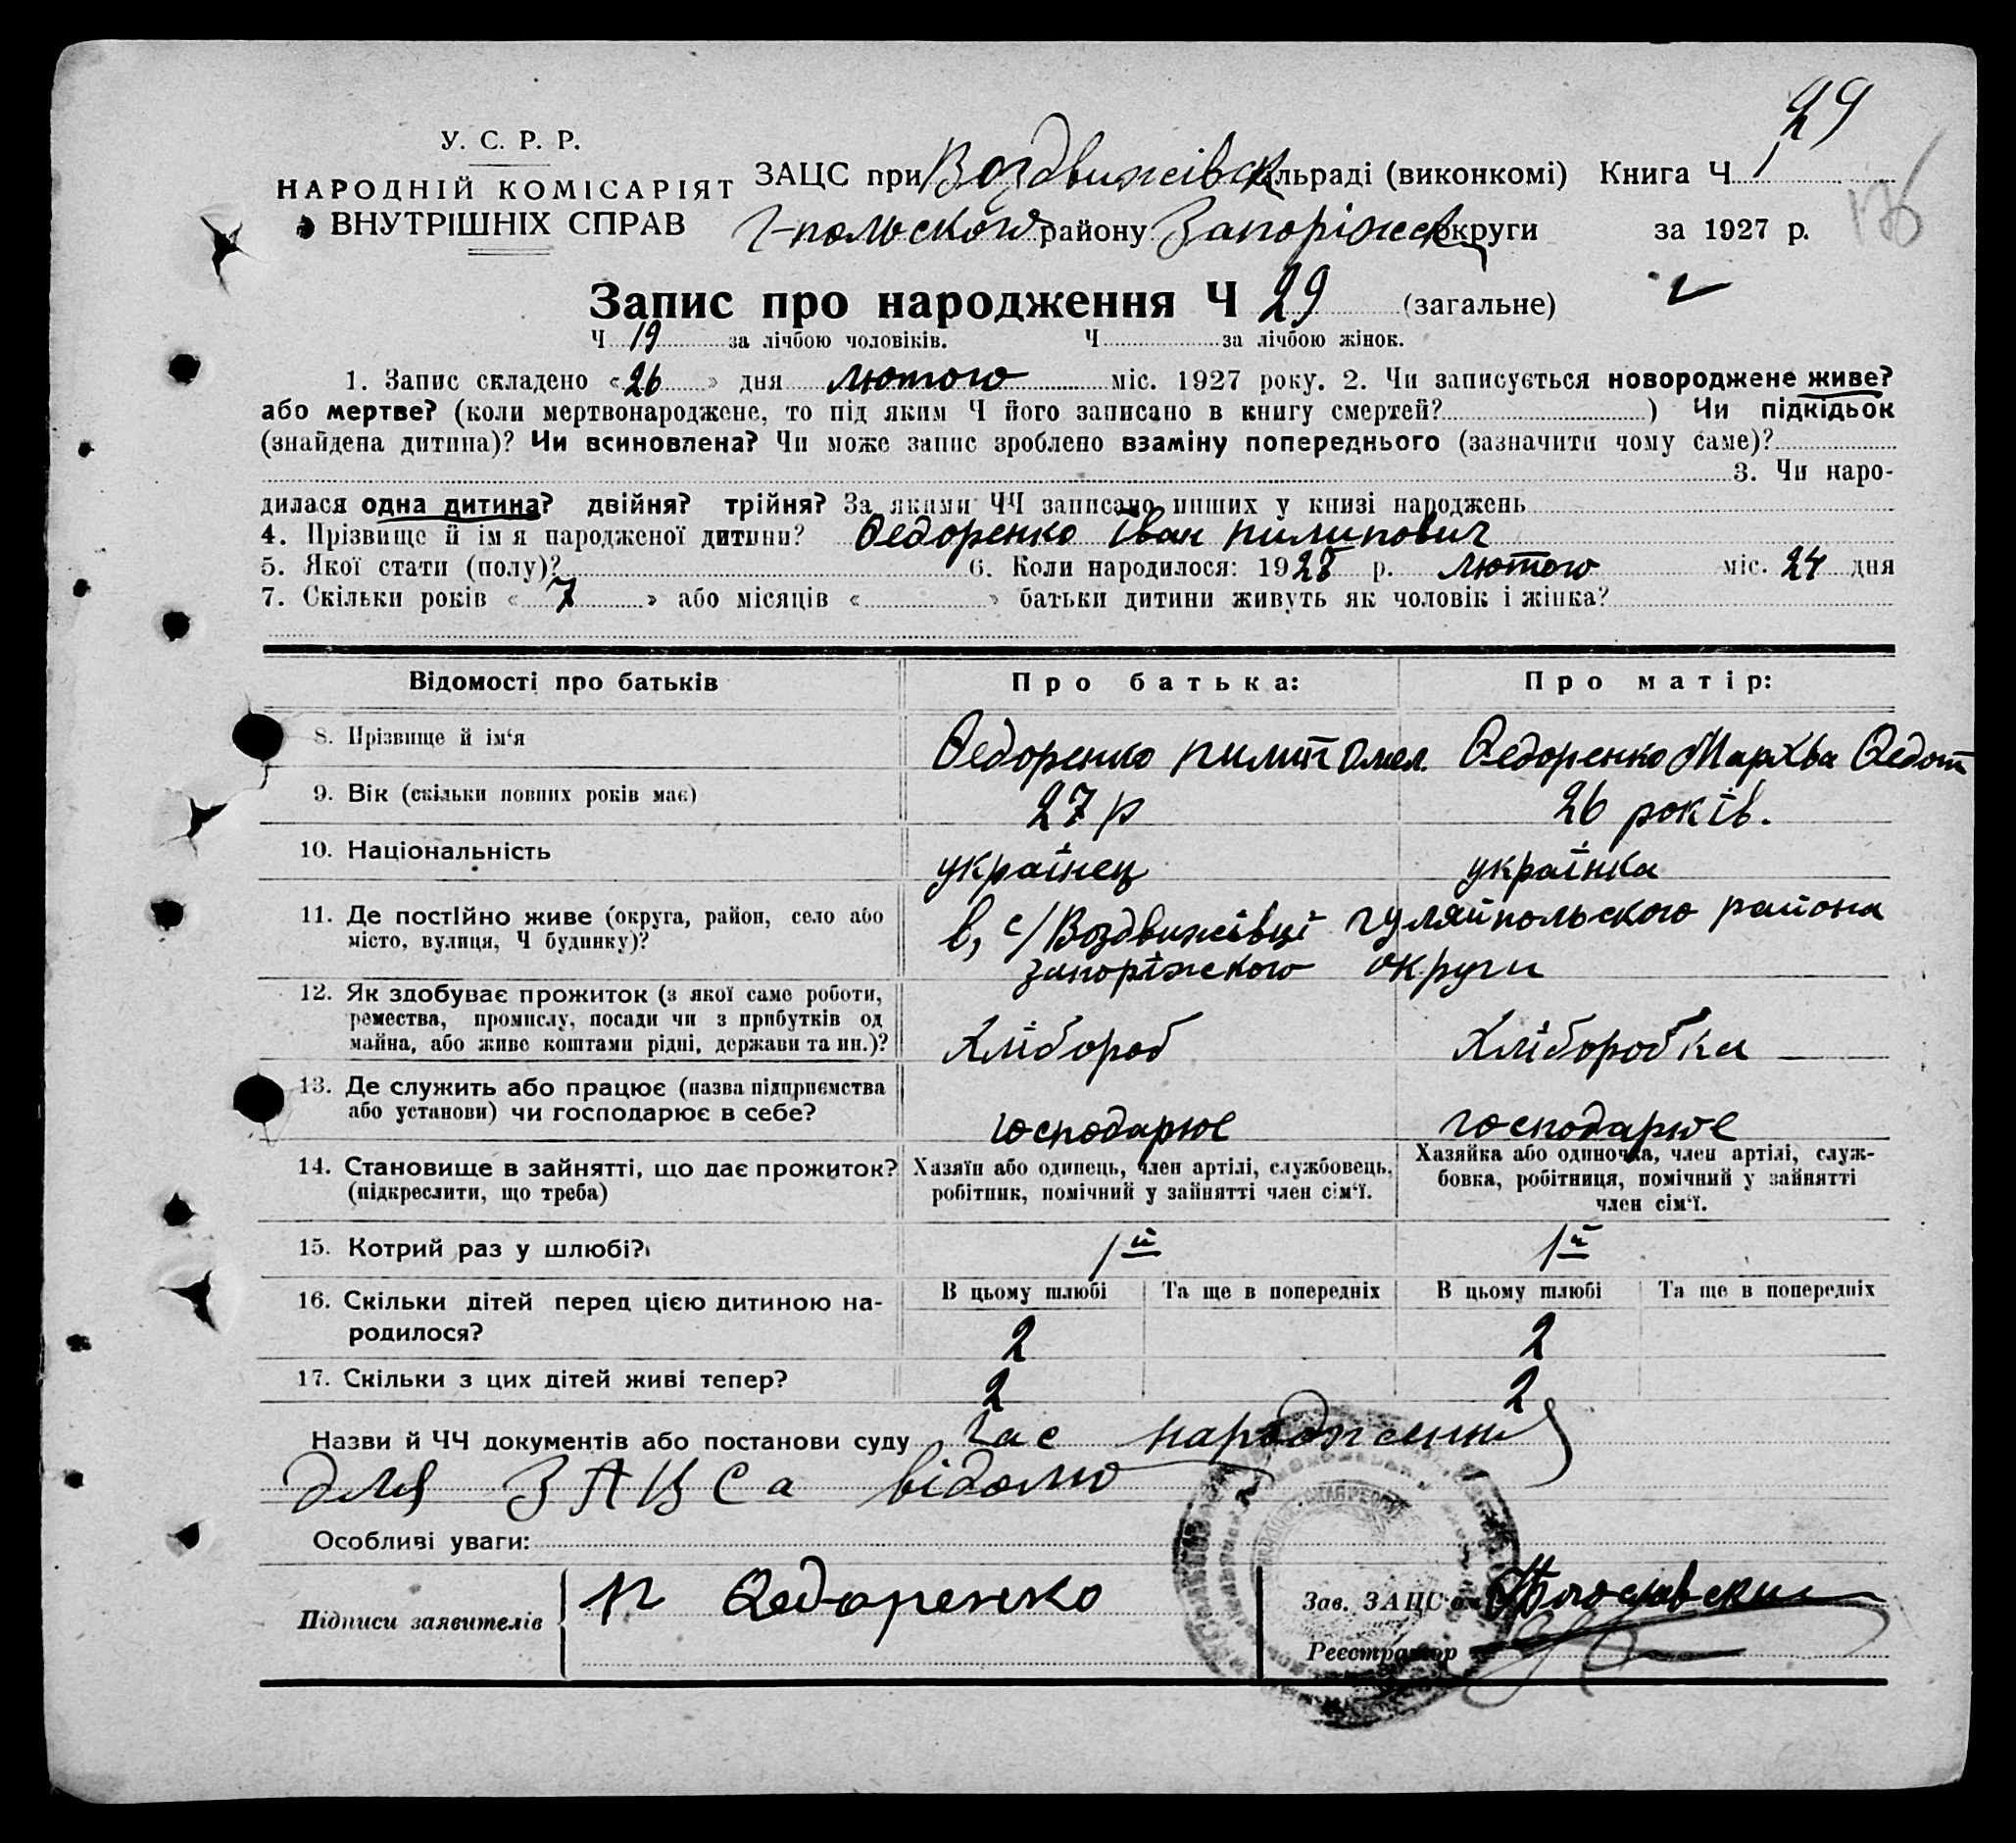 29
У. С. Р. Р.
НАРОДНІЙ КОМІСАРІЯТ
ВНУТРІШНІХ СПРАВ
ЗАЦС при Воздвижівск сільраді (виконкомі) Книга Ч 1
Г-польского району Запоріжск округи за 1927 р.
176
Запис про народження Ч 29 (загальне)
Ч 19 за лічбою чоловіків. Ч за лічбою жінок.
1. Запис складено «26» дня лютого міс. 1927 року. 2. Чи записується новороджене живе?
або мертве? (коли мертвонароджене, то під яким Ч його записано в книгу смертей? ) Чи підкідьок
(знайдена дитина)? Чи всиновлена? Чи може запис зроблено взаміну попереднього (зазначити чому саме)?
3. Чи наро-
дилася одна дитина? двійня? трійня? За якими ЧЧ записано инших у книзі народжень
4. Прізвище й ім я народженої дитини? Федоренко Іван Пилипович
5. Якої стати (полу)? 6. Коли народилося: 1928 р. лютого міс. 24 дня
7. Скільки років «7» або місяців « » батьки дитини живуть як чоловік і жінка?
Відомості про батьків Про батька: Про матір:
8. Прізвище й ім‘я Федоренко Пилип Омел. Федоренко Мархва Федот
9. Вік (скільки повних років має) 27 р 26 років.
10. Національність українец українка
11. Де постійно живе (округа, район, село або
місто, вулиця, Ч будинку)? в, с/Воздвижівці Гуляйпольского района
запоріжского округи
12. Як здобуває прожиток (з якої саме роботи,
ремества, промислу, посади чи з прибутків од
майна, або живе коштами рідні, держави та ин.)? Хлібороб Хліборобка
13. Де служить або працює (назва підприємства
або установи) чи господарює в себе? господарює господарює
14. Становище в зайнятті, що дає прожиток?
(підкреслити, що треба)
Хазяїн або одинець, член артілі, службовець,
робітник, помічний у зайнятті член сім‘ї.
Хазяйка або одиночка, член артілі, служ-
бовка, робітниця, помічний у зайнятті
член сім‘ї.
15. Котрий раз у шлюбі? 1й 1й
16. Скільки дітей перед цією дитиною на-
родилося?
В цьому шлюбі Та ще в попередніх В цьому шлюбі Та ще в попередніх
2 2
17. Скільки з цих дітей живі тепер? 2 2
Назви й ЧЧ документів або постанови суду Час народження
для ЗАЦСа відомо
Особливі уваги:
Підписи заявителів П Федоренко
Зав. ЗАЦС
Реєстратор